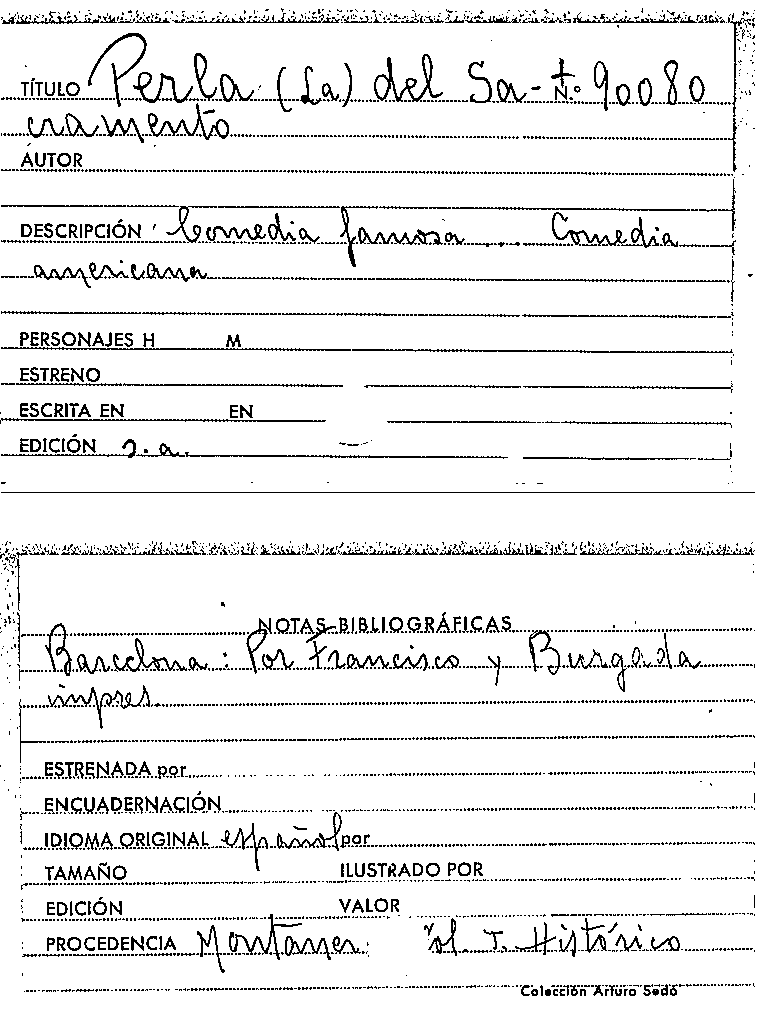 TÍTULO Perla (La) del Sa- N.º 90080
cramento
AUTOR
DESCRIPCIÓN Comedia famosa ... Comedia
americana
PERSONAJES H M
ESTRENO
ESCRITA EN EN
EDICIÓN s.a.
NOTAS BIBLIOGRÁFICAS
Barcelona: Por Francisco y Burgada
impres.
ESTRENADA por
ENCUADERNACIÓN
IDIOMA ORIGINAL español por
TAMAÑO ILUSTRADO POR
EDICIÓN VALOR
PROCEDENCIA Montaner. T. Histórico
Colección Arturo Sedó